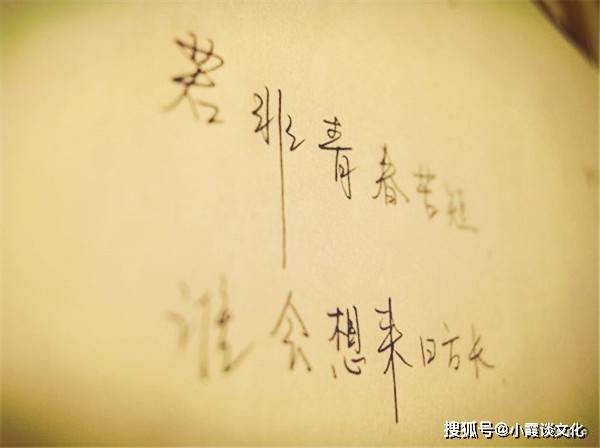 若非青春苦短
谁会想来日方长
搜狐号@小霞谈文化